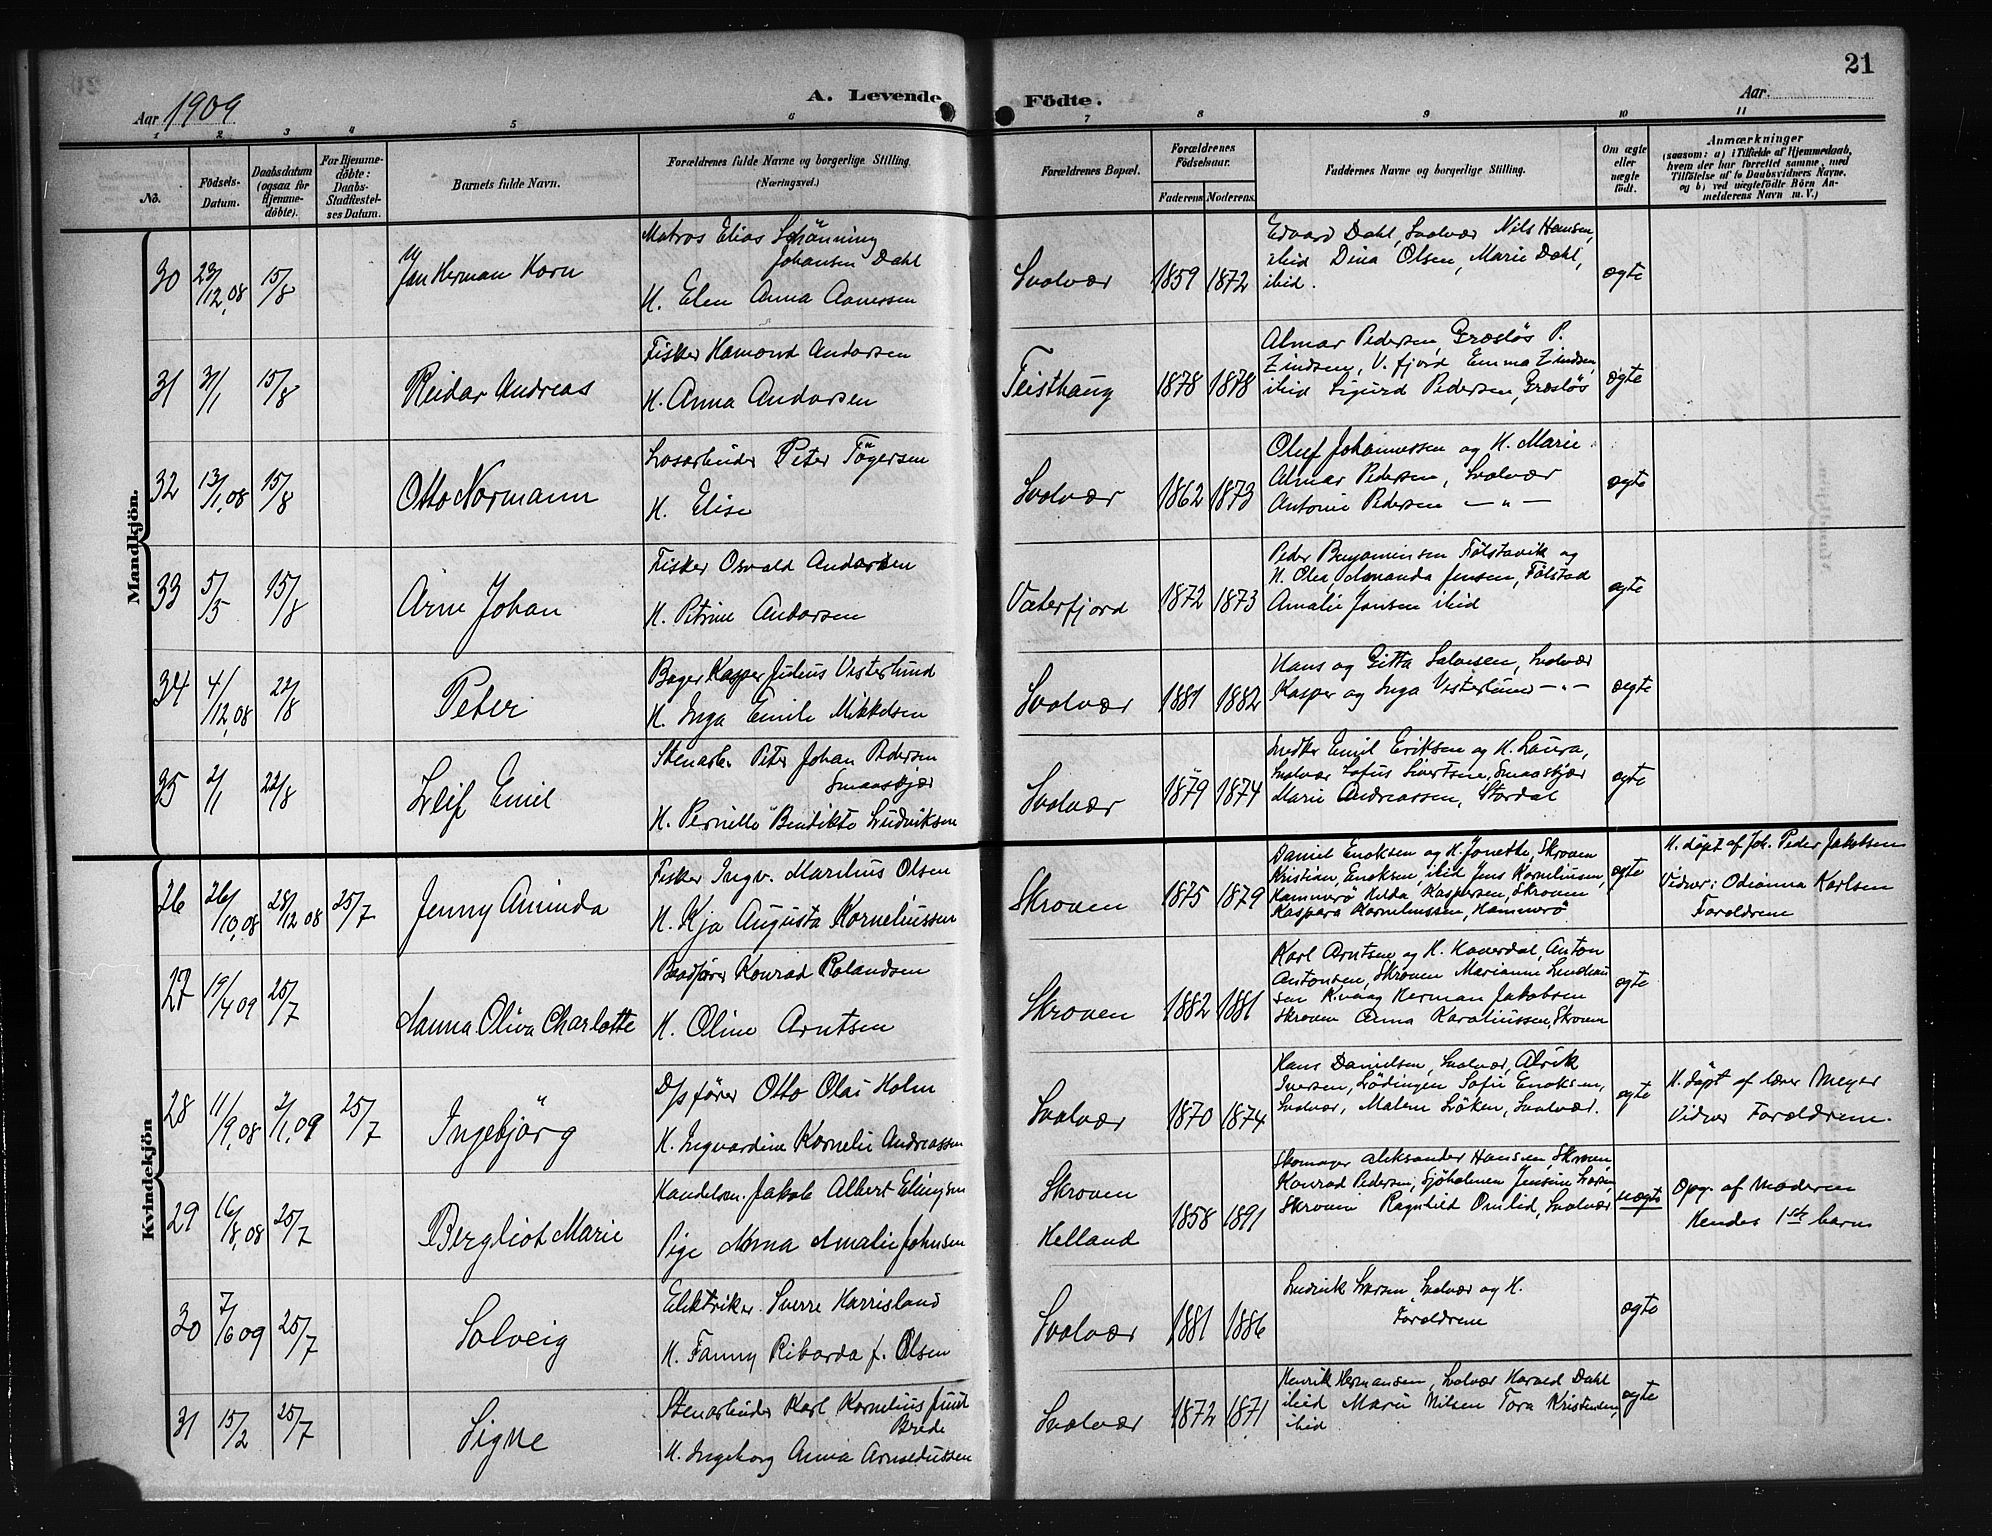 21
Aar 1909
A. Levende Födte.
Aar
1 2 3 4 5 6 7 8 9 10 11
No.
Födsels-Datum.
Daabsdatum (ogsaa for Hjemme-döbte).
For Hjemme-döbte: Daabs-Stadfæstel-ses Datum.
Barnets fulde Navn.
Forældrenes fulde Navne og borgerlige Stilling. (Næringsvei.)
Forældrenes Bopæl.
Forældrenes Födselsaar.
Faderens Moderens
Faddernes Navne og borgerlige Stilling.
Om ægte eller uægte födt.
Anmærkninger
(saasom: a) i Tilfælde af Hjemmedaab, hvem der har forrettet samme, med Tilföielse af to Daabsvidners Navne, og b) ved uægtefödte Börn An-melderens Navn m. V.)
Mandkjön.
30 23/12,08 15/8 Jan Herman Korn
Matros Elias Schönning Johansen Dahl
H. Elen Anna Asmessen
Svolvær 1859 1872
Edvard Dahl, Svolvær Nils Hansen,
ibid Dina Olsen, Marie Dahl,
ibid.
ægte
31 3/1 15/8 Reidar Andreas
Fisker Hamond Andorsen
H. Anna Andorsen
Teisthaug 1878 1878
Almar Pedersen, Græsløs P.
Zindsen, V. fjord Emma Zindsen,
ibid Sigurd Pedersen, Græsløs
ægte
32 13/1,08 15/8 Otto Normann
Løsarbeider Peter Tögersen
H. Elise
Svolvær 1862 1873
Oluf Johannessen og H. Marie
Almar Pedersen, Svolvær
Antonie Pedersen — " —
ægte
33 5/15 15/8 Arne Johan
Fisker Osvald Andorsen
H. Petrine Andorsen
Vaterfjord 1872 1873
Peder Benjaminsen Følstavik og
H. Olea, Amanda Jensen, Følstad
Amalie Jensen ibid
ægte
34 4/12,08 22/8 Peter
Bager Kasper Julius Vesterlund
H. Inga Emilie Mikkelsen
Svolvær 1881 1882
Hans og Gitta Salvesen, Svolvær
Kasper og Inga Vesterlund — " —
ægte
35 2/1 22/8 Leif Emil
Stenarb. Peter Johan Pedersen
Smaaskjær
H. Pernille Bendikte Ludviksen
Svolvær 1879 1874
Snedker Emil Eriksen og H. Laura,
Svolvær Sofus Sivertsen, Smaaskjær
Marie Andreassen, Stordal
ægte
Kvindekjön
26 26/10,08 28/12 08 25/7 Jenny Aminda
Fisker Ingv. Marelius Olsen
H. Kja Augusta Korneliussen
Skroven 1875 1879
Daniel Enoksen og H. Jonette, Skroven
Kristian, Enoksen ibid Jens Korneliusen,
Hammerö Hilda Kaspersen, Skroven
Kaspara Korneliussen, Hammerö
ægte
H. döpt af Joh. Peder Jakobsen
Vidner: Odianna Karlsen
Forældrene
27 19/4 09 25/7 Nanna Oliva Charlotte
Baadfører Konrad Rolandsen
H. Oline Arntsen
Skroven 1882 1881
Karl Arntsen og H. Haverdal, Anton
Antonsen, Skroven Marianne Lindrup
sen Kvaag Herman Jakobsen
Skroven Anna Karoliussen, Skroven
ægte
28 11/9,08 2/1,09 25/7 Ingebjörg
D/sfører Otto Olai Holm
H. Ingvardine Kornelie Andreassen
Svolvær 1870 1874
Hans Danielsen, Svolvær, Alrik
Iversen, Lödingen Sofie Enoksen,
Svolvær, Malene Löken, Svolvær.
ægte
H. döpt af lærer Meyer
Vidner Forældrene.
29 16/8,08 25/7 Bergliot Marie
Handelsm. Jakob Albert Elingsen
Pige Anna Amalie Johnsen
Skroven
Helland
1858 1891
Skomager Aleksander Hansen, Skroven
Konrad Pedersen, Sjöholmen Jensine Larsen,
Skroven Ragnhild Omlid, Svolvær
uægte
Opg. af Moderen
Hendes 1ste barn
30 7/6 09 25/7 Solveig
Elektriker Sverre Harrisland
H. Fanny Rikarda f. Olsen
Svolvær 1881 1886
Ludvik Larsen, Svolvær og H.
Forældrene
ægte
31 15/2 25/7 Signe
Stenarbeider Karl Kornelius Juul
Brede
H. Ingeborg Anna Arnoldussen
Svolvær 1872 1871
Henrik Hermansen, Svolvær Harald Dahl
ibid Marie Nilsen Tora Kristensen,
ibid
ægte